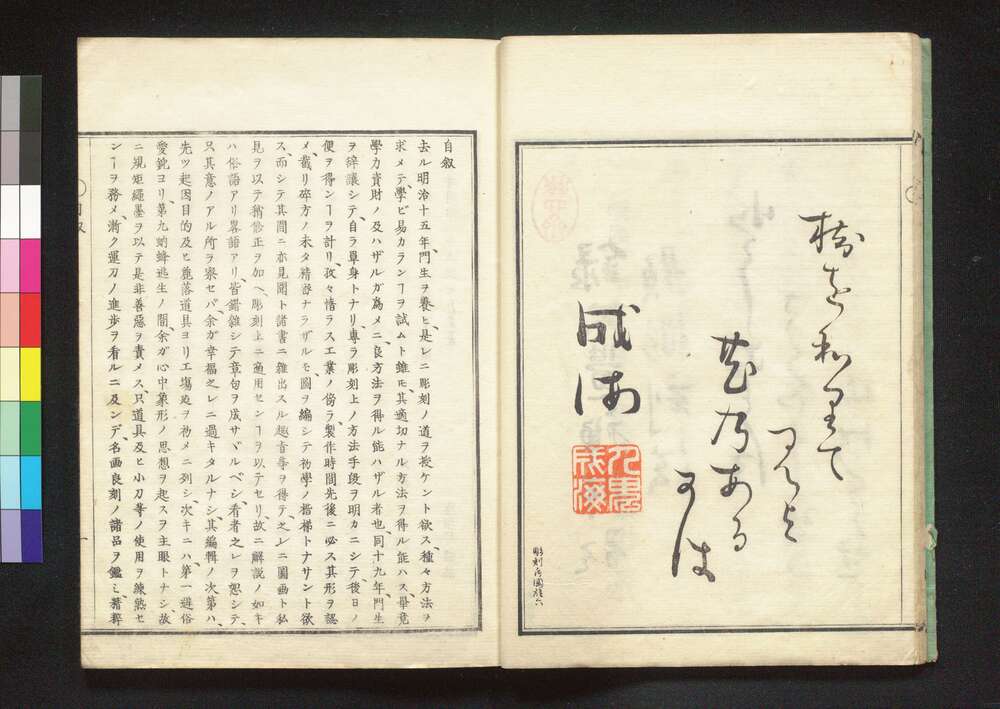 成海
彫刻応国雄六
自叙
去ル明治十五年、門生ヲ養ヒ、是レニ彫刻ノ道ヲ授ケント欲ス、種々方法ヲ
求メテ、學ビ易カランヿヲ試ムト雖モ、其適切ナル方法ヲ得ル能ハス、畢竟
學力資財ノ及ハザルガ為メニ、良方法ヲ得ル能ハザル者也、同十九年、門生
ヲ辞譲シテ、自ラ單身トナリ、專ラ彫刻上ノ方法手段ヲ明カニシテ、後日ノ
便ヲ得ンヿヲ計リ、孜々惰ラス工業ノ傍ラ、製作時間先後ニ必ス其形ヲ認
メ、截リ碎方ノ未タ精密ナラザルモ、圖ヲ編シテ、初學ノ楷梯トナサント欲
ス、而シテ其間ニ亦見聞ト諸書ニ雜出スル趣旨等ヲ得テ、之レニ圖画ト私
見ヲ以テ稍修正ヲ加ヘ、彫刻上ニ適用センヿヲ以テセリ、故ニ解説ノ如キ
ハ俗語アリ畧語アリ、皆錯雜シテ章句ヲ成サヾルベシ、看者之レヲ恕シテ、
只其意ノアル所ヲ察セバ、余ガ幸福之レニ過キタルナシ、其編輯ノ次第ハ、
先ツ起因目的及ヒ麁落道具ヨリ工塲処ヲ初メニ列シ、次キニハ、第一避俗
愛銳ヨリ、第九蛸蜂逃生ノ間、余ガ心中象形ノ思想ヲ起スヲ主眼トナシ、故
ニ規矩繩墨ヲ以テ是非善惡ヲ責メス、只道具及ヒ小刀等ノ使用ヲ練熟セ
ンヿヲ務メ、漸ク運刀ノ進歩ヲ看ルニ及ンデ、名画良刻ノ諸品ヲ鑑ミ、精粹